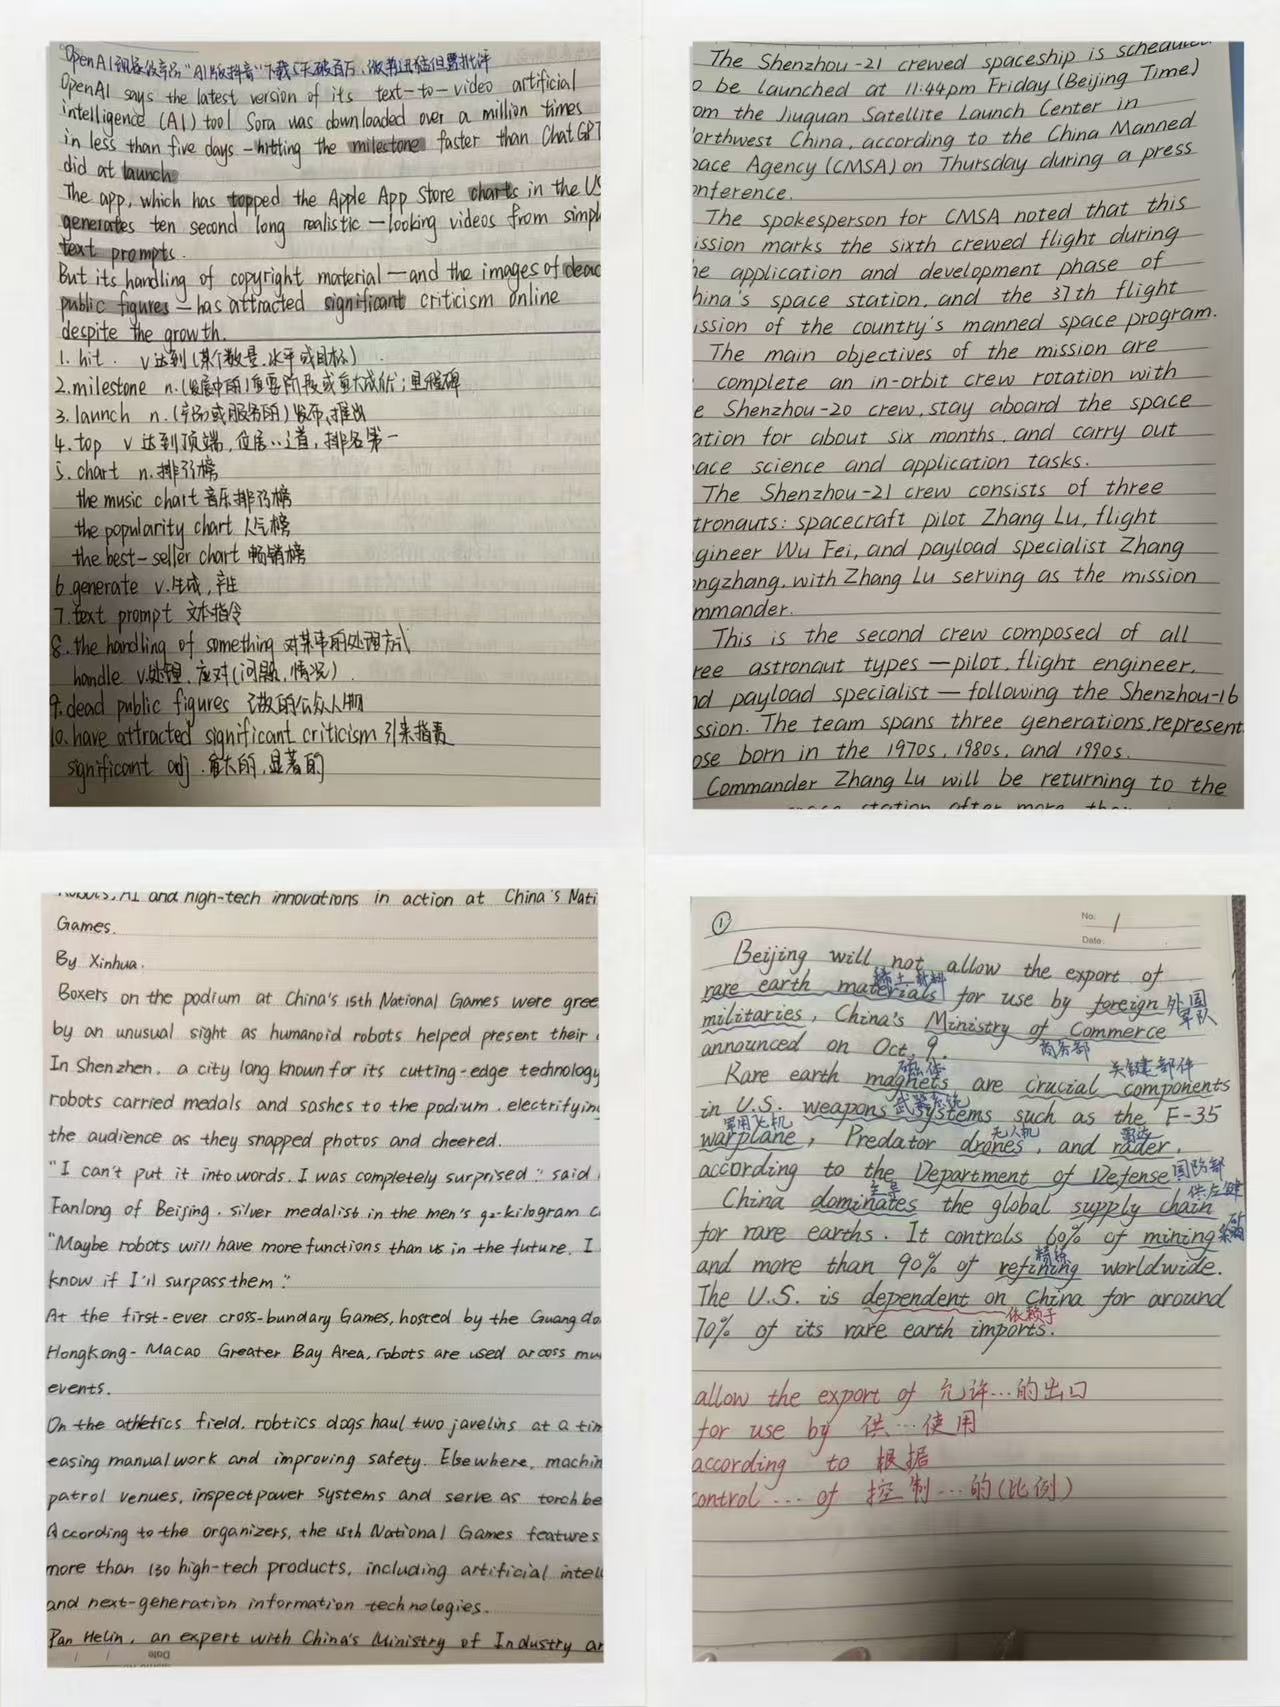 OpenAI "AI版抖音"下载5天破百万,做势迅猛但遭批评
OpenAI says the latest version of its text-to-video artificial
intelligence (AI) tool Sora was downloaded over a million times
in less than five days - hitting the milestone faster than ChatGPT
did at launch
The app, which has topped the Apple App Store charts in the US
generates ten second long realistic-looking videos from simpl
text prompts.
But its handling of copyright material - and the images of dead
public figures - has attracted significant criticism online
despite the growth.
1. hit. v 达到(某个数量.水平或目标)
2. milestone n.(发展中的)重要阶段或重大成就;里程碑
3. launch n.(产品或服务的)发布,推出
4. top v 达到顶端,位居…之首,排名第一
5. chart n.排行榜
the music chart 音乐排行榜
the popularity chart 人气榜
the best-seller chart 畅销榜
6 generate v.生成,产生
7. text prompt 文本指令
8. the handling of something 对某事的处理方式
handle v.处理.应对(问题,情况)
9. dead public figures 已故的公众人物
10. have attracted significant criticism 引来指责
significant adj.重大的,显著的
The Shenzhou-21 crewed spaceship is scheduled
o be launched at 11:44pm Friday (Beijing Time)
om the Jiuquan Satellite Launch Center in
orthwest China, according to the China Manned
pace Agency (CMSA) on Thursday during a press
onference.
The spokesperson for CMSA noted that this
ission marks the sixth crewed flight during
he application and development phase of
hina's space station, and the 37th flight
ission of the country's manned space program.
The main objectives of the mission are
complete an in-orbit crew rotation with
e Shenzhou-20 crew, stay aboard the space
ation for about six months, and carry out
ace science and application tasks.
The Shenzhou-21 crew consists of three
tronauts: spacecraft pilot Zhang Lu, flight
gineer Wu Fei, and payload specialist Zhang
ongzhang, with Zhang Lu serving as the mission
mmander.
This is the second crew composed of all
ree astronaut types — pilot, flight engineer,
nd payload specialist — following the Shenzhou-16
ssion. The team spans three generations, represent
ose born in the 1970s, 1980s, and 1990s.
Commander Zhang Lu will be returning to the
space station after more than
Robots, AI and high-tech innovations in action at China's Nati
Games.
By Xinhua.
Boxers on the podium at China's 15th National Games were gree
by an unusual sight as humanoid robots helped present their
In Shenzhen, a city long known for its cutting-edge technology
robots carried medals and sashes to the podium, electrifying
the audience as they snapped photos and cheered.
"I can't put it into words. I was completely surprised," said
Fanlong of Beijing, silver medalist in the men's 92-kilogram c
"Maybe robots will have more functions than us in the future. I
know if I'll surpass them."
At the first-ever cross-bundary Games, hosted by the Guangdo
HongKong-Macao Greater Bay Area, robots are used arcoss mu
events.
On the athletics field, robtics dogs haul two javelins at a tim
easing manual work and improving safety. Elsewhere, machin
patrol venues, inspect power systems and serve as torch be
According to the organizers, the 15th National Games features
more than 130 high-tech products, including artificial intell
and next-generation information technologies.
Pan Helin, an expert with China's Ministry of Industry an
Date
① No. 1
Date:
Beijing will not allow the export of
稀土材料
rare earth materials for use by foreign 外国
militaries, China's Ministry of Commerce 军队
announced on Oct. 9. 商务部
磁体 关键部件
Rare earth magnets are crucial components
in U.S. weapons 武器系统 systems such as the F-35
军用飞机 无人机 雷达
warplane, Predator drones, and rader,
according to the Department of Defense 国防部
主导 供应键
China dominates the global supply chain
for rare earths. It controls 60% of mining
精练
and more than 90% of refining worldwide.
The U.S. is dependent on China for around
依赖于
70% of its rare earth imports.
allow the export of 允许…的出口
for use by 供…使用
according to 根据
control … of 控制…的(比例)